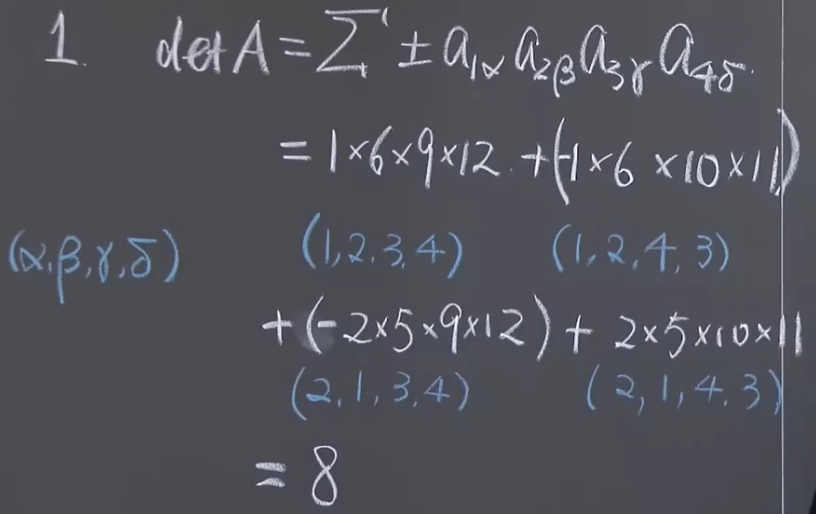 1. det A = Σ ± a₁α a₂β a₃γ a₄δ.
= 1×6×9×12 + (-1×6×10×11)
(α,β,γ,δ) (1,2,3,4) (1,2,4,3)
+ (-2×5×9×12) + 2×5×10×11
(2,1,3,4) (2,1,4,3)
= 8